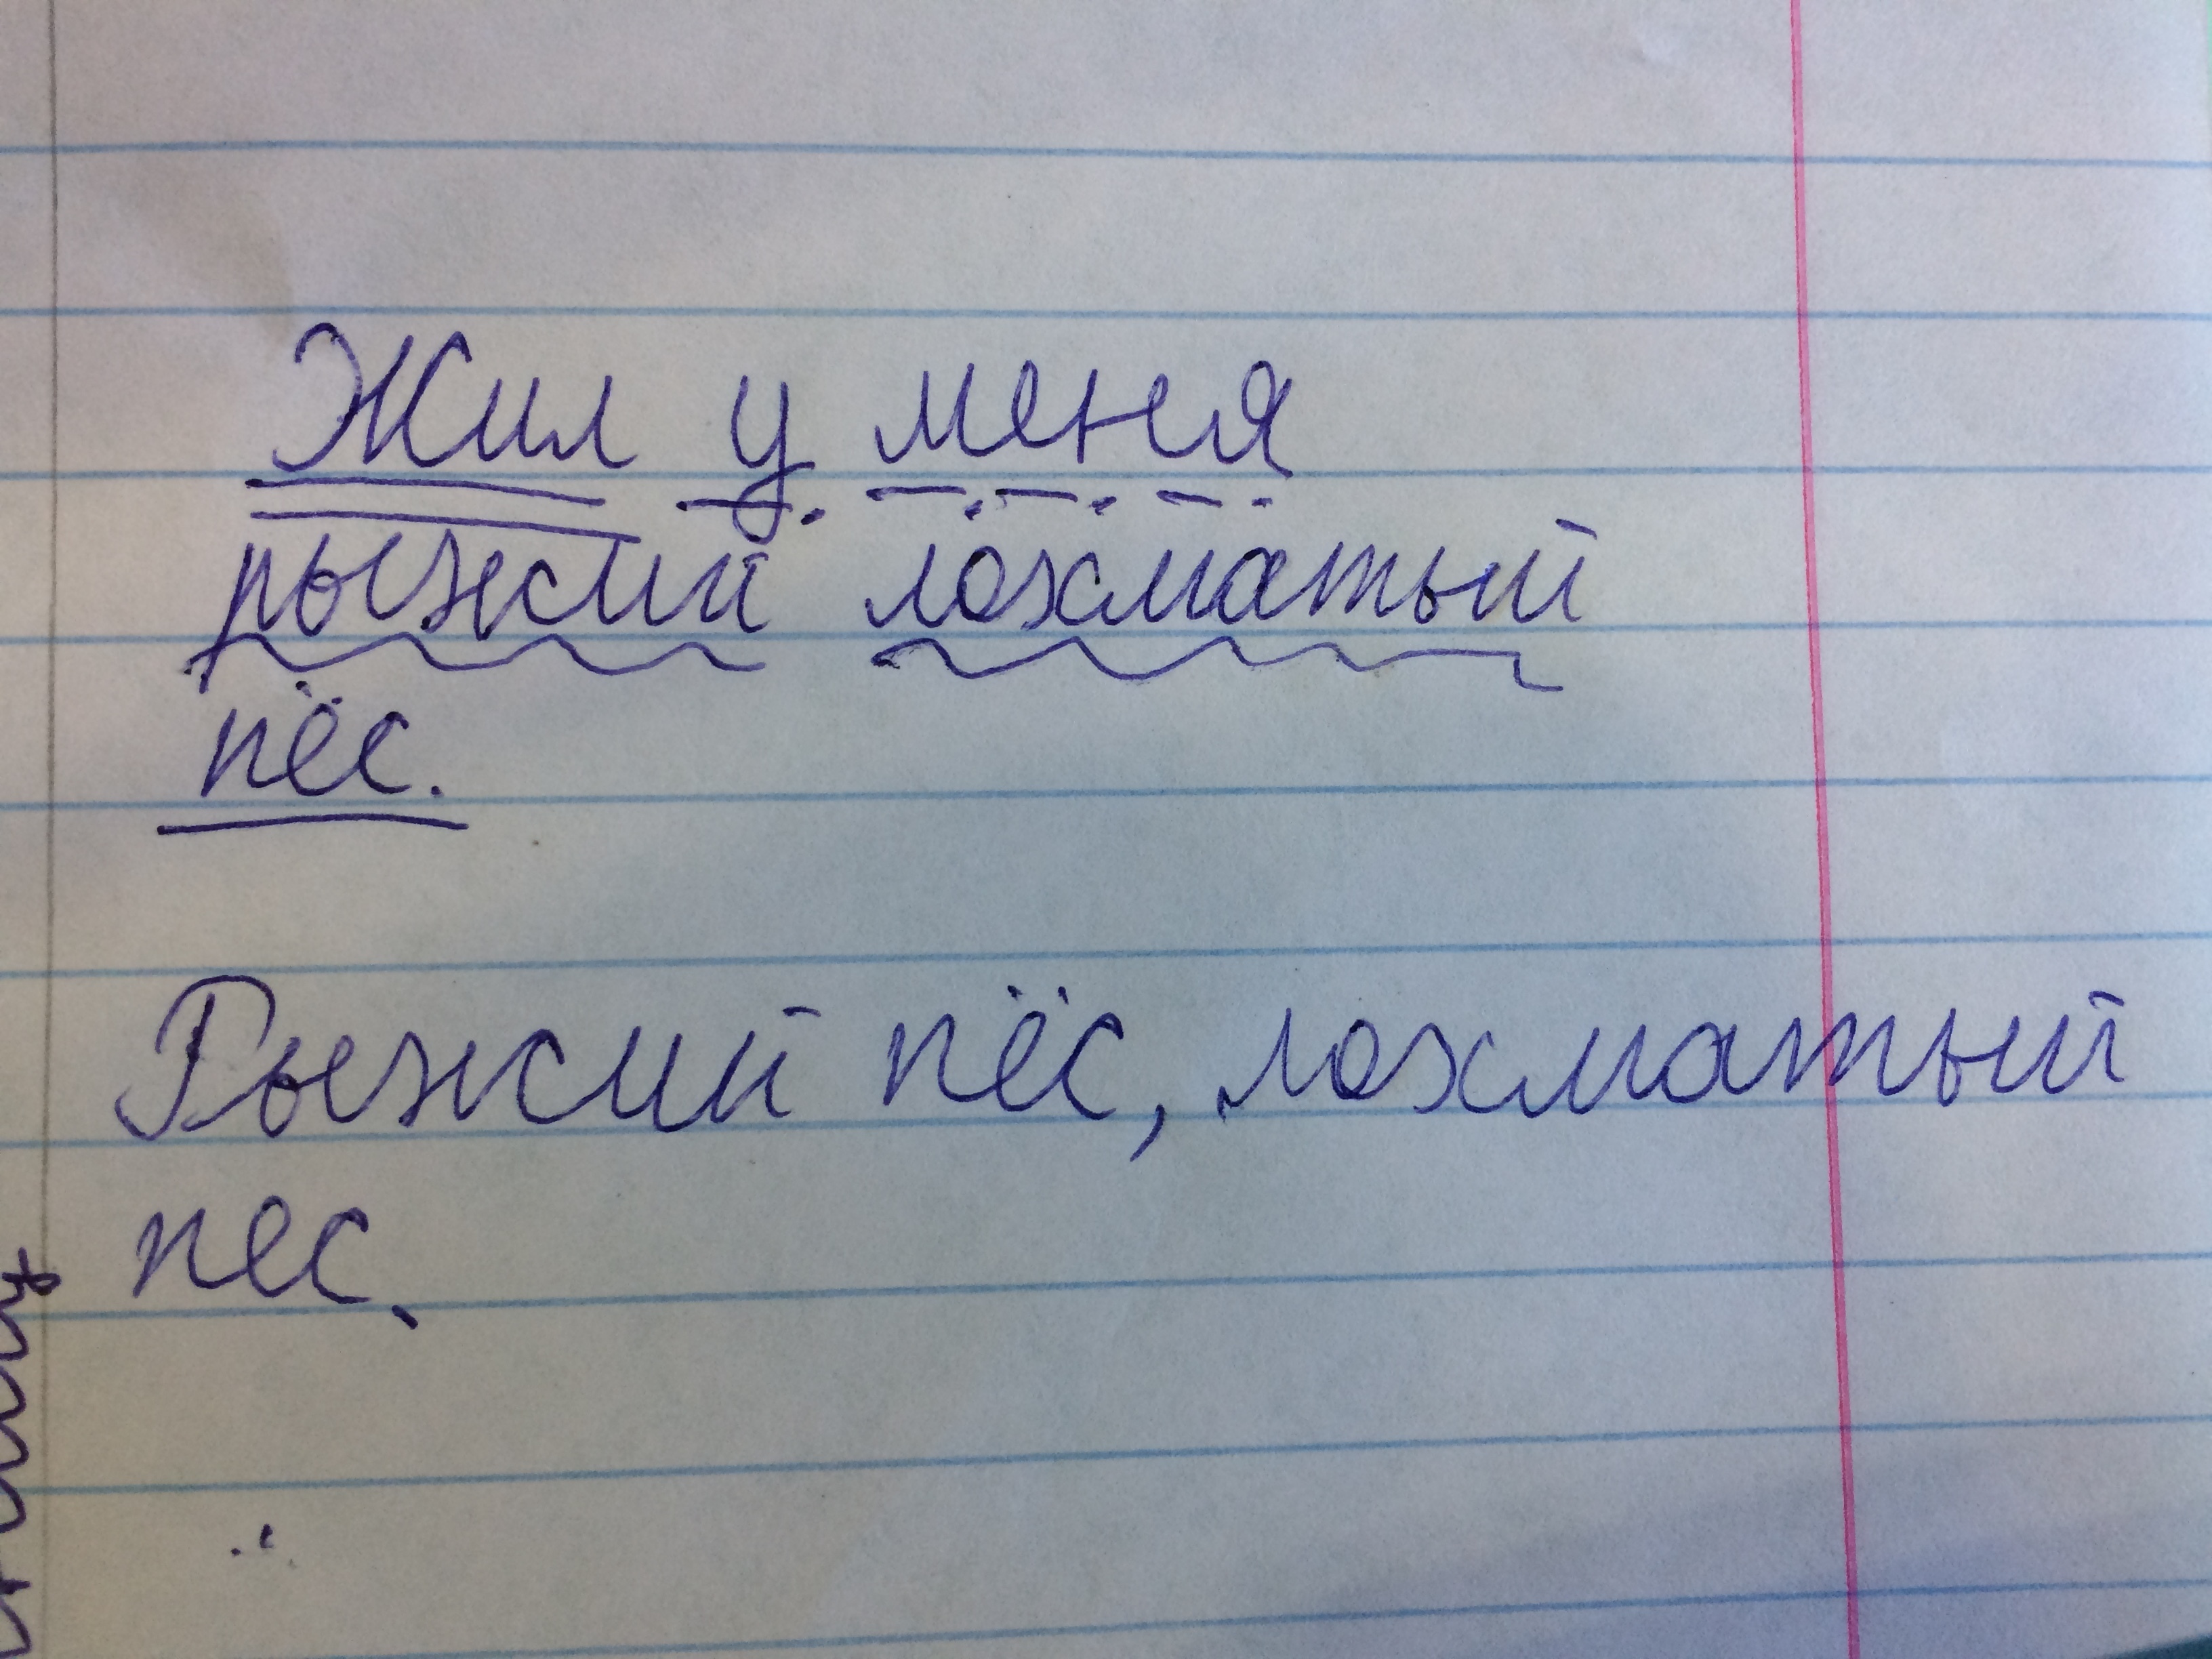 Жил у меня
рыжий лохматый
пёс.
Рыжий пёс, лохматый
пес.